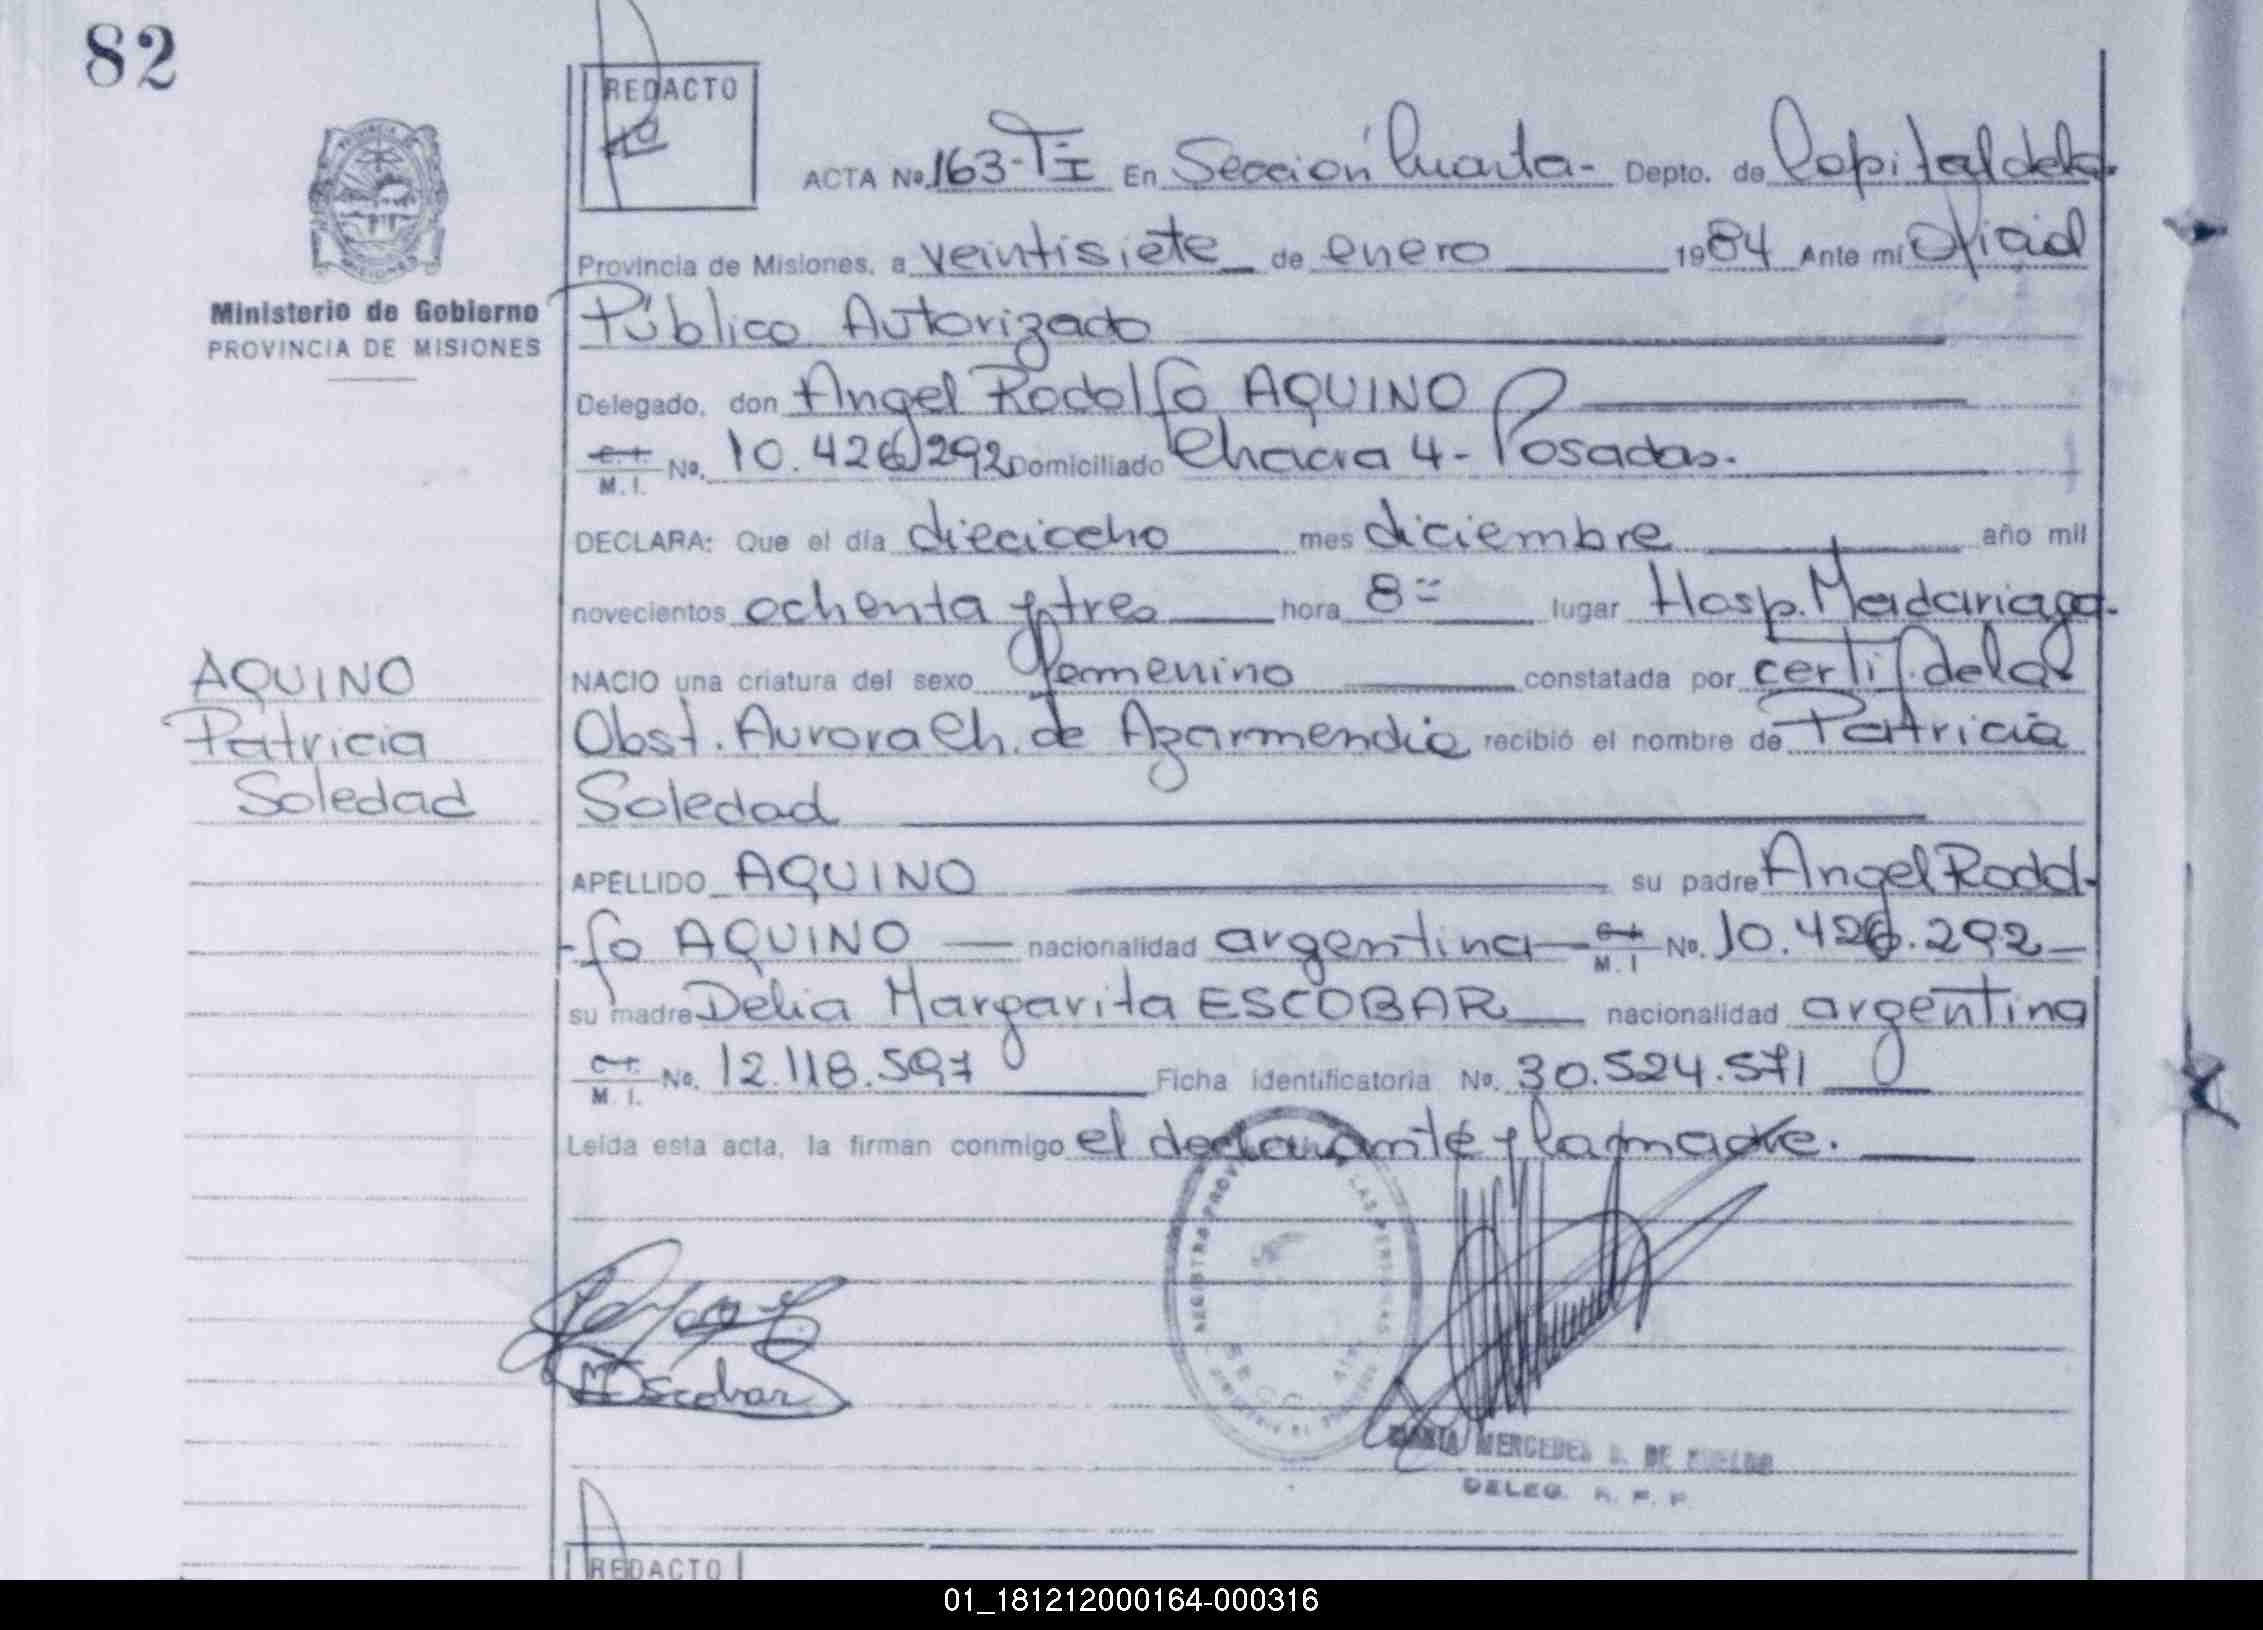 82
REDACTO
ACTA No. 163-TI En Sección Cuarta- Depto. de Capital dela-
Provincia de Misiones, a veintisiete de enero 1984 Ante mí Oficial
Público Autorizado
Ministerio de Gobierno
PROVINCIA DE MISIONES
Delegado, don Angel Rodolfo AQUINO
C.I. M.I. No. 10.426.292 Domiciliado Chacra 4- Posadas.
DECLARA: Que el día dieciocho mes diciembre año mil
novecientos ochenta y tres hora 8 lugar Hosp. Madariaga-
NACIO una criatura del sexo femenino constatada por certif. dela
Obst. Aurora Ch. de Azarmendia recibió el nombre de Patricia
Soledad
AQUINO
Patricia
Soledad
APELLIDO AQUINO su padre Angel Rodol-
-fo AQUINO nacionalidad argentina M.I No. 10.426.292
su madre Delia Margarita ESCOBAR nacionalidad argentina
M.I. No. 12.118.597 Ficha identificatoria No. 30.524.571
Leída esta acta, la firman conmigo el declarante y la madre.
REGISTRO PROV LAS PERSONAS
Escobar
MERCEDES DE
DELEG. R. P. P.
REDACTO
01_181212000164-000316